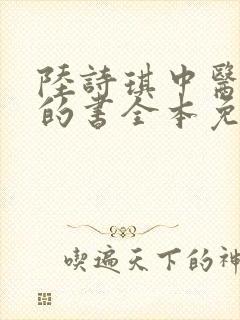 陸詩琪中醫
的書全本免
喫遍天下的神